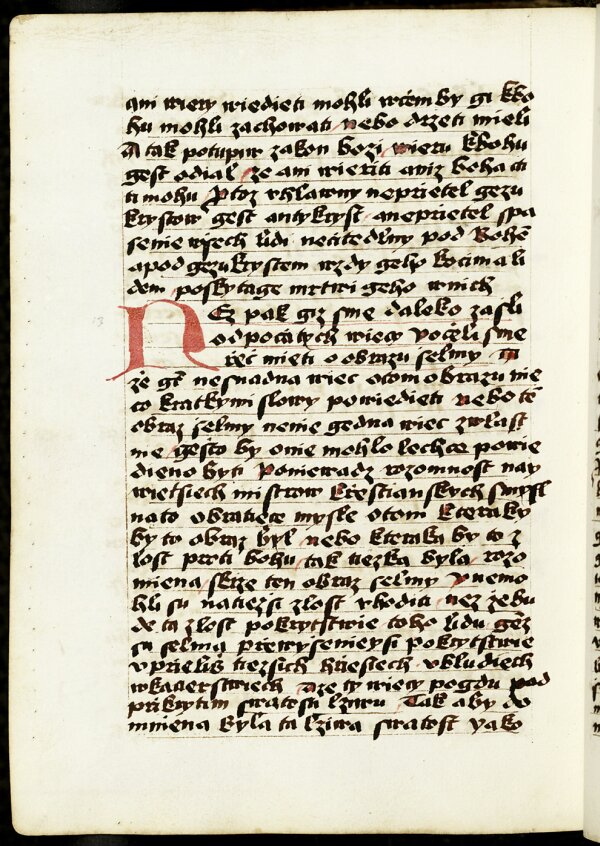 ani wiery wiedieti mohli wčem by gi kbo
hu mohli zachowati nebo držeti mieli
A tak potupiw zakon bozi wieru kbohu
gest odial ze ani wieriti aniz boha cti
ti mohu Protoz vhlawny neprietel gezu
krystow gest antykryst aneprietel spa
senie wssech lidi necitedlny pod Bohem
apod gezukrystem wzdy geho kocima li
dem poskytage mrtwi geho wnich
13
NEz pak giz sme daleko zassli
odpocatych wiecy voceli sme
rec mieti o obrazu selmy A
ze gt nesnadna wiec otom obrazu nie
co kratkymi slowy powiedieti nebo te
obraz selmy nenie gedna wiec zwlast
nie gesto by onie mohlo lechce powie
dieno byti Poniewadz rozomnost nay
wietsiech mistrow krestianskych smysl
nato obratiece mysle otom kteraky
by to obraz byl nebo kteraka by to z
lost proti bohu tak tiezka byla rozo
miena skrze ten obraz selmy Vnemo
hli su natiezsi zlost vhoditi nez ze bu
de ta zlost pokrytstwie toho lidu genz
su selma prewysenieysi pokrytstwie
vprielis tiezsich hriesiech vbludiech
wkacierstwiech Aze ty wiecy pogdu pod
prikrytim swatosti lzywu Tak aby do
mniena byla ta lziwa swatost yako